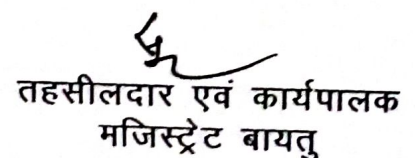 तहसीलदार एवं कार्यपालक
मजिस्ट्रेट बायतु